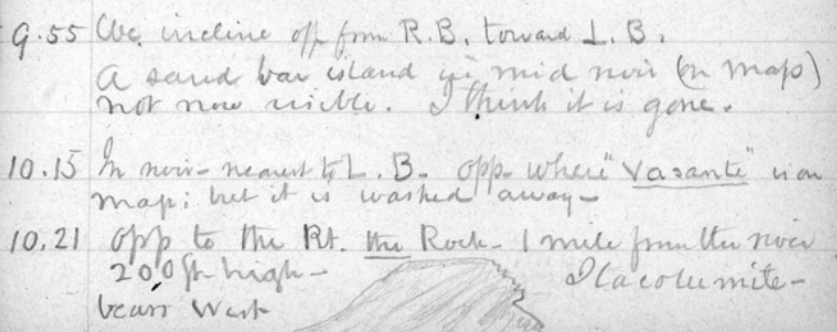 9.55 We incline off from R.B. toward L.B.
A sand bar island in mid river (on map)
not now visible. I think it is gone.
10.15 In river - nearest to L.B. - opp. where "Vasante" is on
map; but it is washed away -
10.21 opp to the Rt. the Rock - 1 mile from the river
200 ft. high - Itacolumite -
bears West